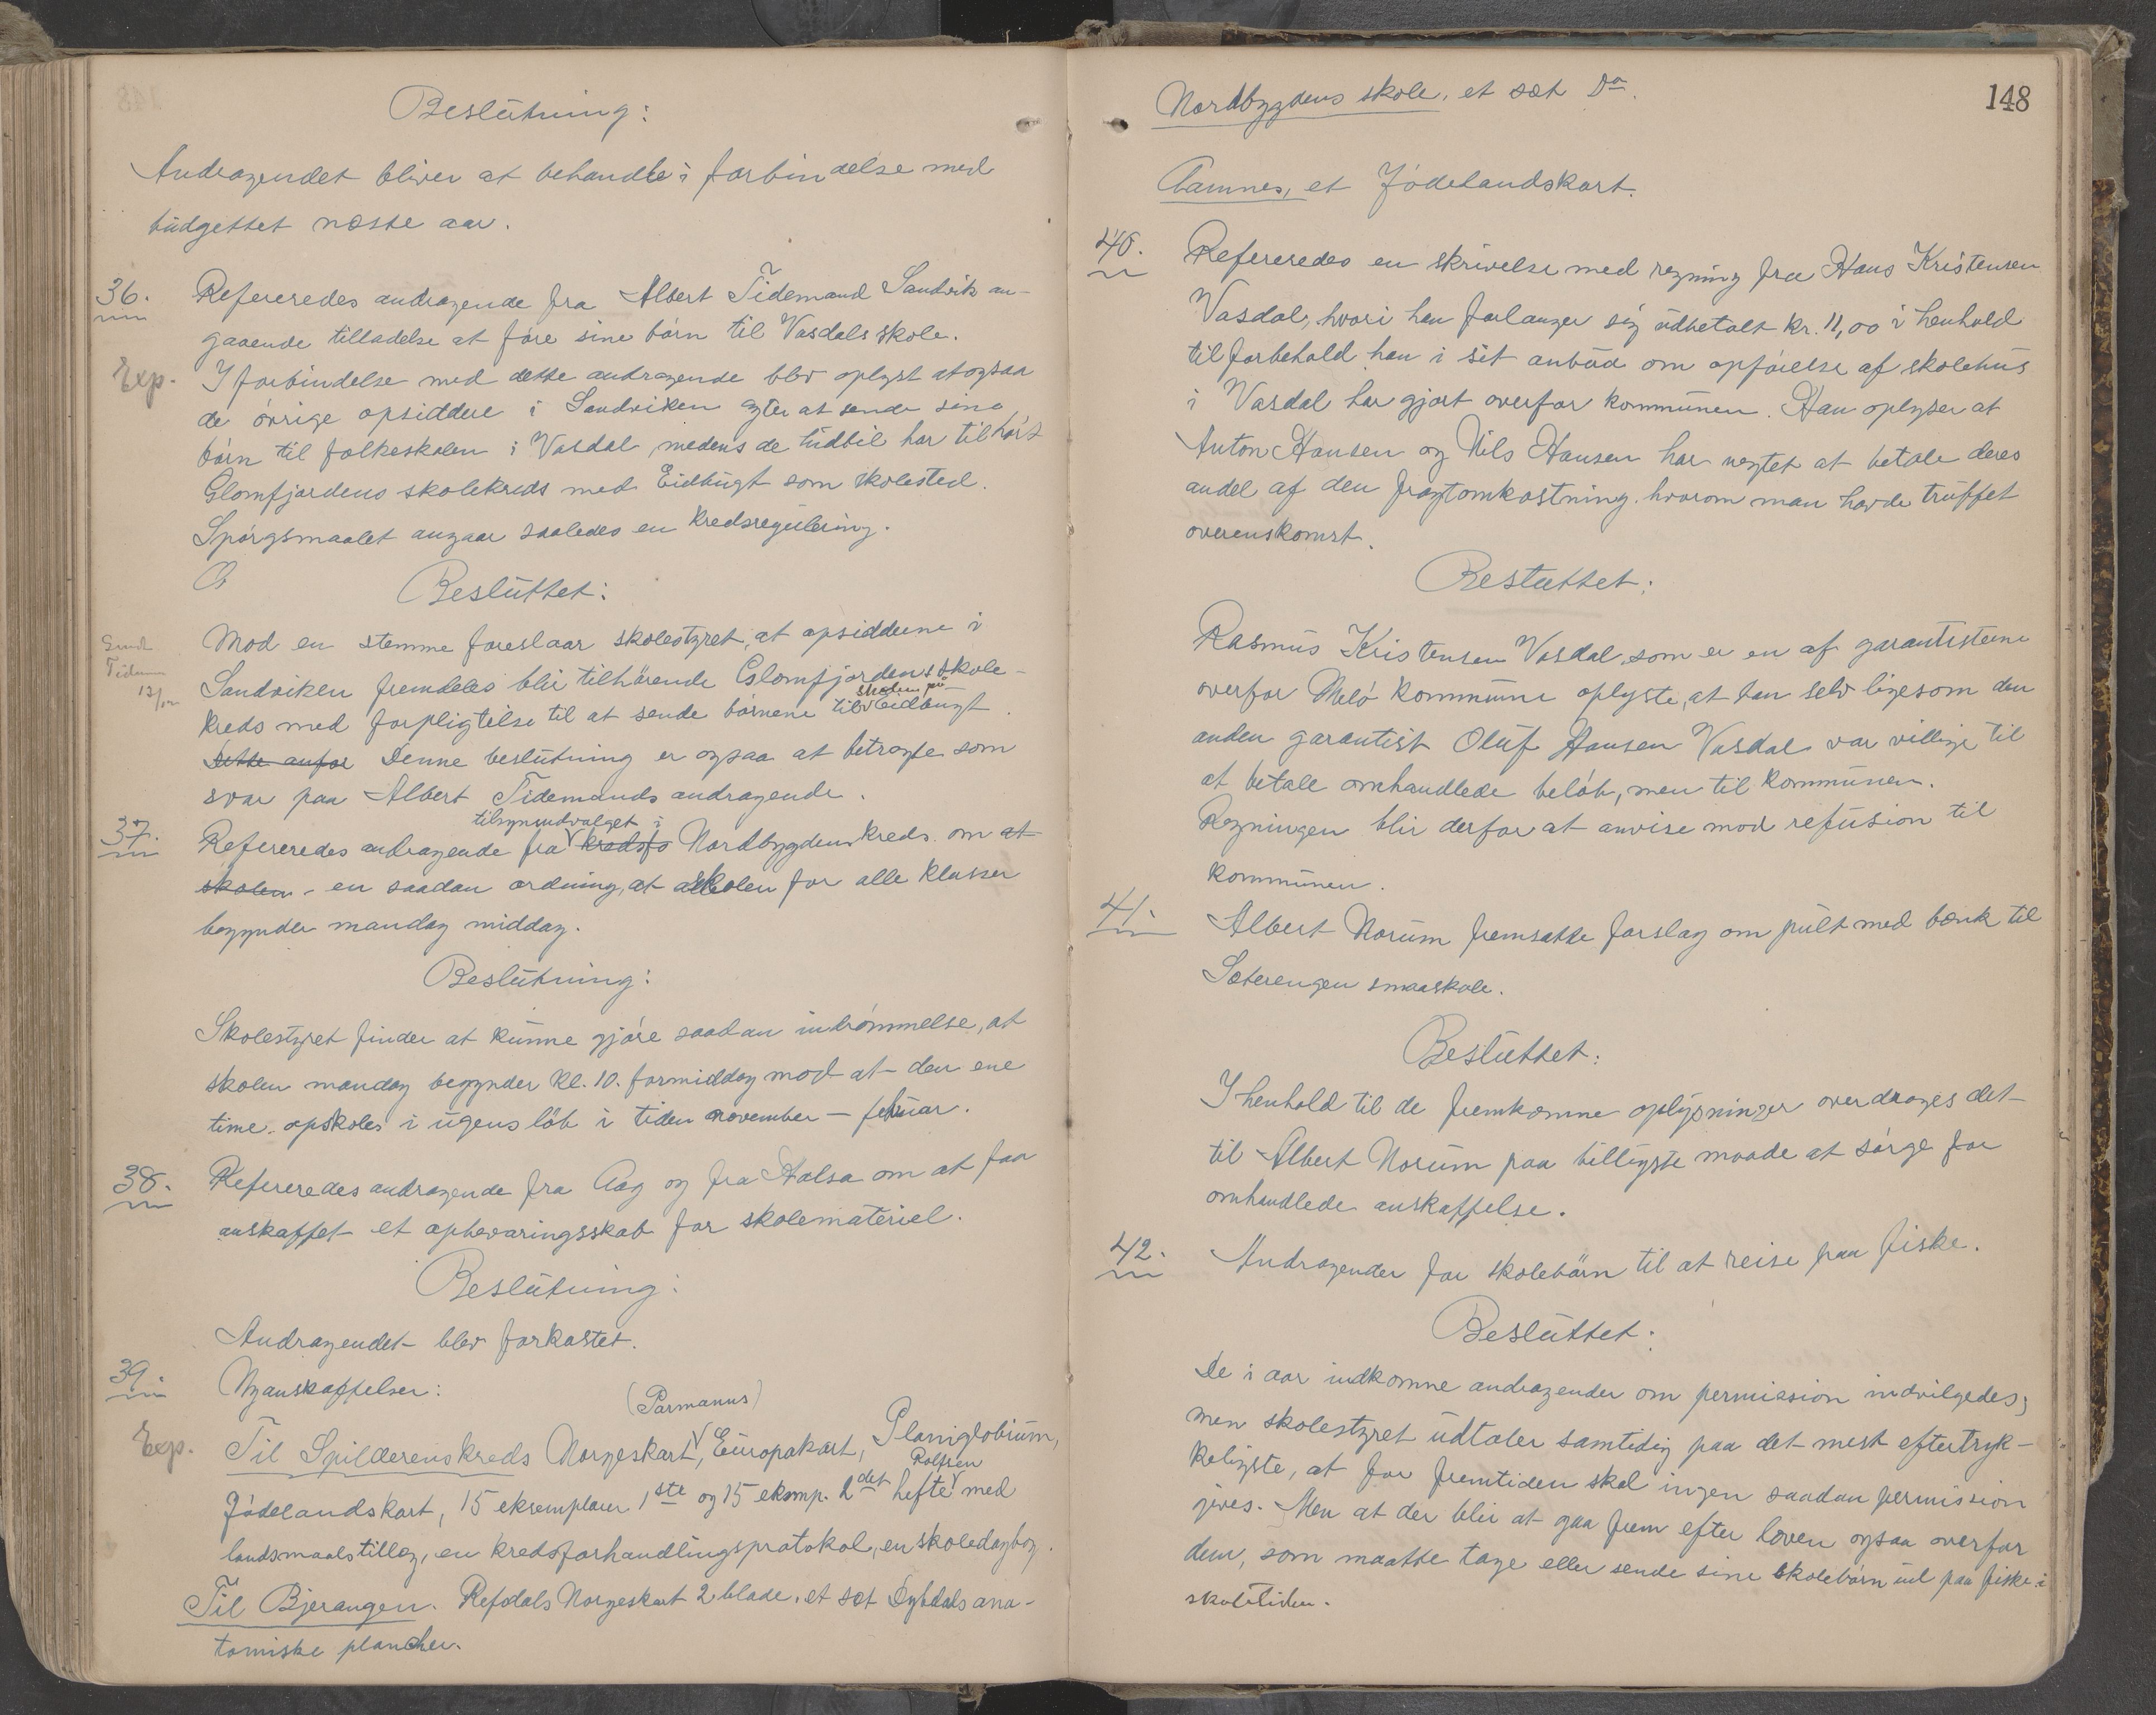 Beslutning:
Andragendet bliver at behandle i forbindelse med
budgettet næste aar.
36. Refereredes andragende fra Albert Tidemand Sandvik an-
gaaende tilladelse at føre sine børn til Vasdals skole.
Exp. I forbindelse med dette andragende blev oplyst at ogsaa
de øvrige opsiddere i Sandviken agter at sende sine
børn til folkeskolen i Vasdal, medens de hidtil har tilhørt
Glomfjordens skolekreds med Eidbugt som skolested.
Spørgsmaalet angaar saaledes en kredsregulering.
Besluttet:
Mod en stemme foreslaar skolestyret, at opsidderne i
Sandviken fremdeles blir tilhörende Glomfjordens skole-
skolen paa
kreds med forpligtelse til at sende børnene til Eidbugt.
Dette anfør Denne beslutning er ogsaa at betragte som
svar paa Albert Tidemands andragende.
tilsynsudvalget i
37. Refereredes andragende fra kredsfo Nordbygdens kreds om at
skolen - en saadan ordning, at skolen for alle klasser
begynder mandag middag.
Beslutning:
Skolestyret finder at kunne gjøre saadan indrømmelse, at
skolen mandag begynder kl. 10. formiddag mod at den ene
time opskoles i ugens løb i tiden november - februar.
38. Refereredes andragende fra Aag og fra Halsa om at faa
anskaffet et opbevaringsskab for skolemateriel.
Beslutning:
Andragendet blev forkastet.
39. Nyanskaffelser:
(Parmanns)
Exp. Til Spilderens kreds Norgeskart, Europakart, Planiglobium,
Rolfsen
Jødelandskart, 15 eksemplarer 1ste og 15 eksmp. 2det hefte med
landsmaalstillæg, en kredsforhandlingsprotokol, en skoledagbog.
Til Bjerangen. Refsdals Norgeskart 2 blade, et sæt Dybdals ana-
tomiske plancher.
148
Nordbygdens skole, et sæt Do.
Aamnes, et Jødelandskart.
40. Refereredes en skrivelse med regning fra Hans Kristensen
Vasdal, hvori han forlanger sig udbetalt kr. 11,00 i henhold
til forbehold han i sit anbud om opførelse af skolehus
i Vasdal har gjort overfor kommunen. Han oplyser at
Anton Hansen og Nils Hansen har negtet at betale deres
andel af den fragtomkostning hvorom man havde truffet
overenskomst.
Besluttet:
Rasmus Kristensen Vasdal, som er en af garantisterne
overfor Melö kommune oplyste, at han selv ligesom den
anden garantist Oluf Hansen Vasdal var villige til
at betale omhandlede beløb, men til kommunen.
Regningen blir derfor at anvise mod refusion til
kommunen.
41. Albert Norum fremsatte forslag om pult med bænk til
Sæterengen smaaskole.
Besluttet:
I henhold til de fremkomne oplysninger overdrages det
til Albert Norum paa billigste maade at sørge for
omhandlede anskaffelse.
42. Andragender for skolebörn til at reise paa fiske.
Besluttet:
De i aar indkomne andragender om permission indvilgedes;
men skolestyret udtaler samtidig paa det mest eftertryk-
keligste, at for fremtiden skal ingen saadan permission
gives. Men at der blir at gaa frem efter loven ogsaa overfor
dem, som maatte tage eller sende sine skolebørn ud paa fiske i
skoletiden.